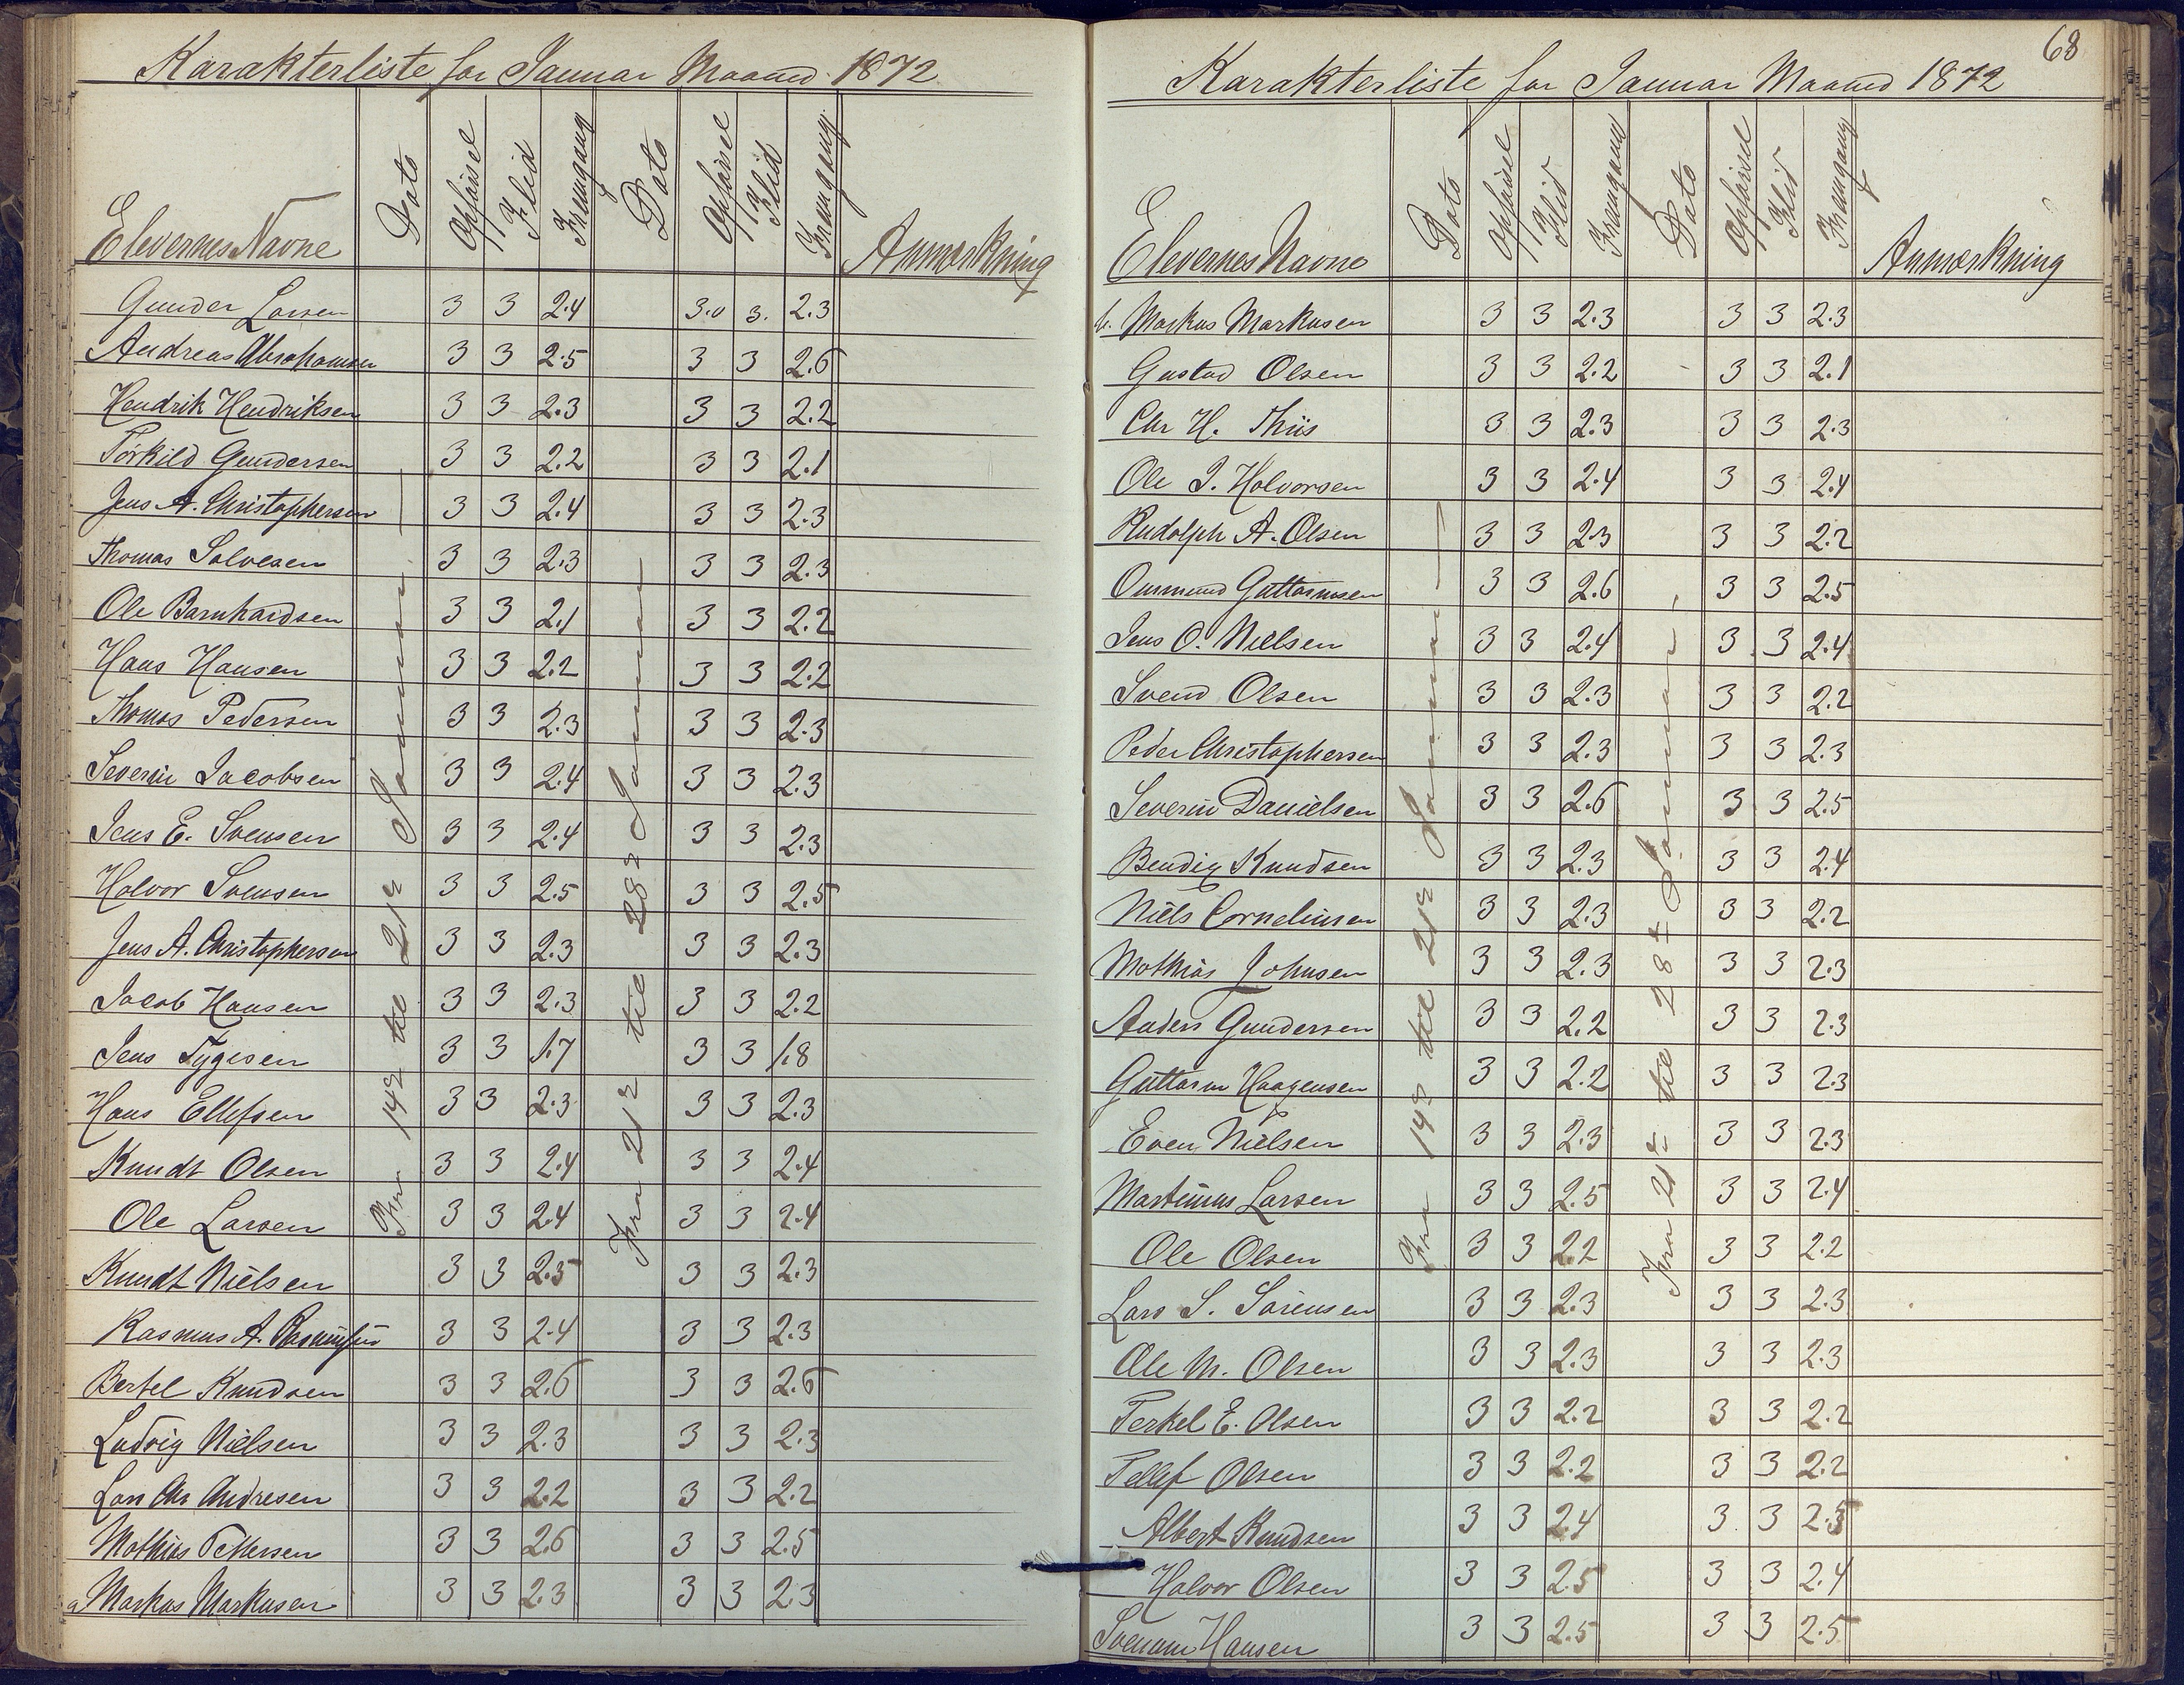 Karakterliste for Januar Maaned 1872
Elevernes Navne Dato Opførsel Flid Fremgang Dato Opførsel Flid Fremgang Anmærkning
Fra 14de til 21de Januar
Fra 21de til 28de Januar
Gunder Larsen 3 3 2.4 3.0 3. 2.3
Andreas Abrahamsen 3 3 2.5 3 3 2.6
Hendrik Hendriksen 3 3 2.3 3 3 2.2
Torkild Gundersen 3 3 2.2 3 3 2.1
Jens A. Christophersen 3 3 2.4 3 3 2.3
Thomas Salvesen 3 3 2.3 3 3 2.3
Ole Barnhardsen 3 3 2.1 3 3 2.2
Hans Hansen 3 3 2.2 3 3 2.2
Thomas Pedersen 3 3 2.3 3 3 2.3
Severin Jacobsen 3 3 2.4 3 3 2.3
Jens E. Svensen 3 3 2.4 3 3 2.3
Halvor Svensen 3 3 2.5 3 3 2.5
Jens A. Christophersen 3 3 2.3 3 3 2.3
Jacob Hansen 3 3 2.3 3 3 2.2
Jens Tygesen 3 3 1.7 3 3 1.8
Hans Ellefsen 3 3 2.3 3 3 2.3
Knudt Olsen 3 3 2.4 3 3 2.4
Ole Larsen 3 3 2.4 3 3 2.4
Knudt Nielsen 3 3 2.5 3 3 2.3
Rasmus A. 3 3 2.4 3 3 2.3
Bertel Knudsen 3 3 2.6 3 3 2.6
Ludvig Nielsen 3 3 2.3 3 3 2.3
Lars Chr Andresen 3 3 2.2 3 3 2.2
Mathias Pettersen 3 3 2.6 3 3 2.5
a Markus Markusen 3 3 2.3 3 3 2.3
68
Karakterliste for Januar Maaned 1872
Elevernes Navne Dato Opførsel Flid Fremgang Dato Opførsel Flid Fremgang Anmærkning
Fra 14de til 21de Januar
Fra 21de til 28de Januar
b. Markus Markusen 3 3 2.3 3 3 2.3
Gustav Olsen 3 3 2.2 3 3 2.1
Chr H. Thiis 3 3 2.3 3 3 2.3
Ole J. Halvorsen 3 3 2.4 3 3 2.4
Rudolph A. Olsen 3 3 2.3 3 3 2.2
Ommund Guttormsen 3 3 2.6 3 3 2.5
Jens O. Nielsen 3 3 2.4 3 3 2.4
Svend Olsen 3 3 2.3 3 3 2.2
Peder Christophersen 3 3 2.3 3 3 2.3
Severin Danielsen 3 3 2.6 3 3 2.5
Bendix Knudsen 3 3 2.3 3 3 2.4
Niels Corneliusen 3 3 2.3 3 3 2.2
Mathias Johnsen 3 3 2.3 3 3 2.3
Anders Gundersen 3 3 2.2 3 3 2.3
Guttorm Haagensen 3 3 2.2 3 3 2.3
Even Nielsen 3 3 2.3 3 3 2.3
Martinius Larsen 3 3 2.5 3 3 2.4
Ole Olsen 3 3 2.2 3 3 2.2
Lars S. Sørensen 3 3 2.3 3 3 2.3
Ole M. Olsen 3 3 2.3 3 3 2.3
Terkel E. Olsen 3 3 2.2 3 3 2.2
Tellef Olsen 3 3 2.2 3 3 2.2
Albert Knudsen 3 3 2.4 3 3 2.5
Halvor Olsen 3 3 2.5 3 3 2.4
Svenum Hansen 3 3 2.5 3 3 2.5